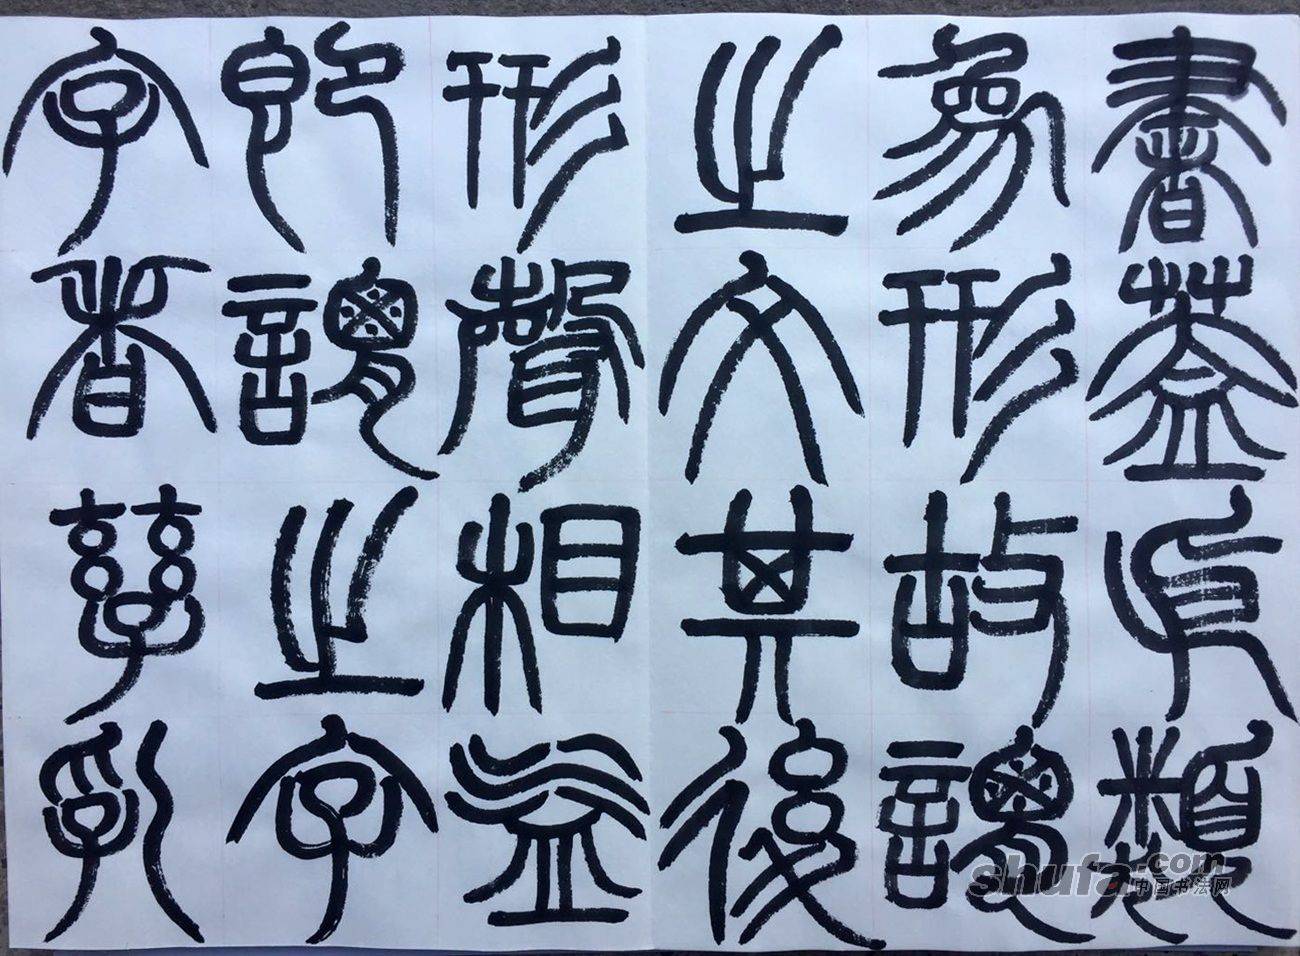 書蓋依類
象形故謂
之文其後
形聲相益
即謂之字
字者孳乳
shufa.com
中国书法网